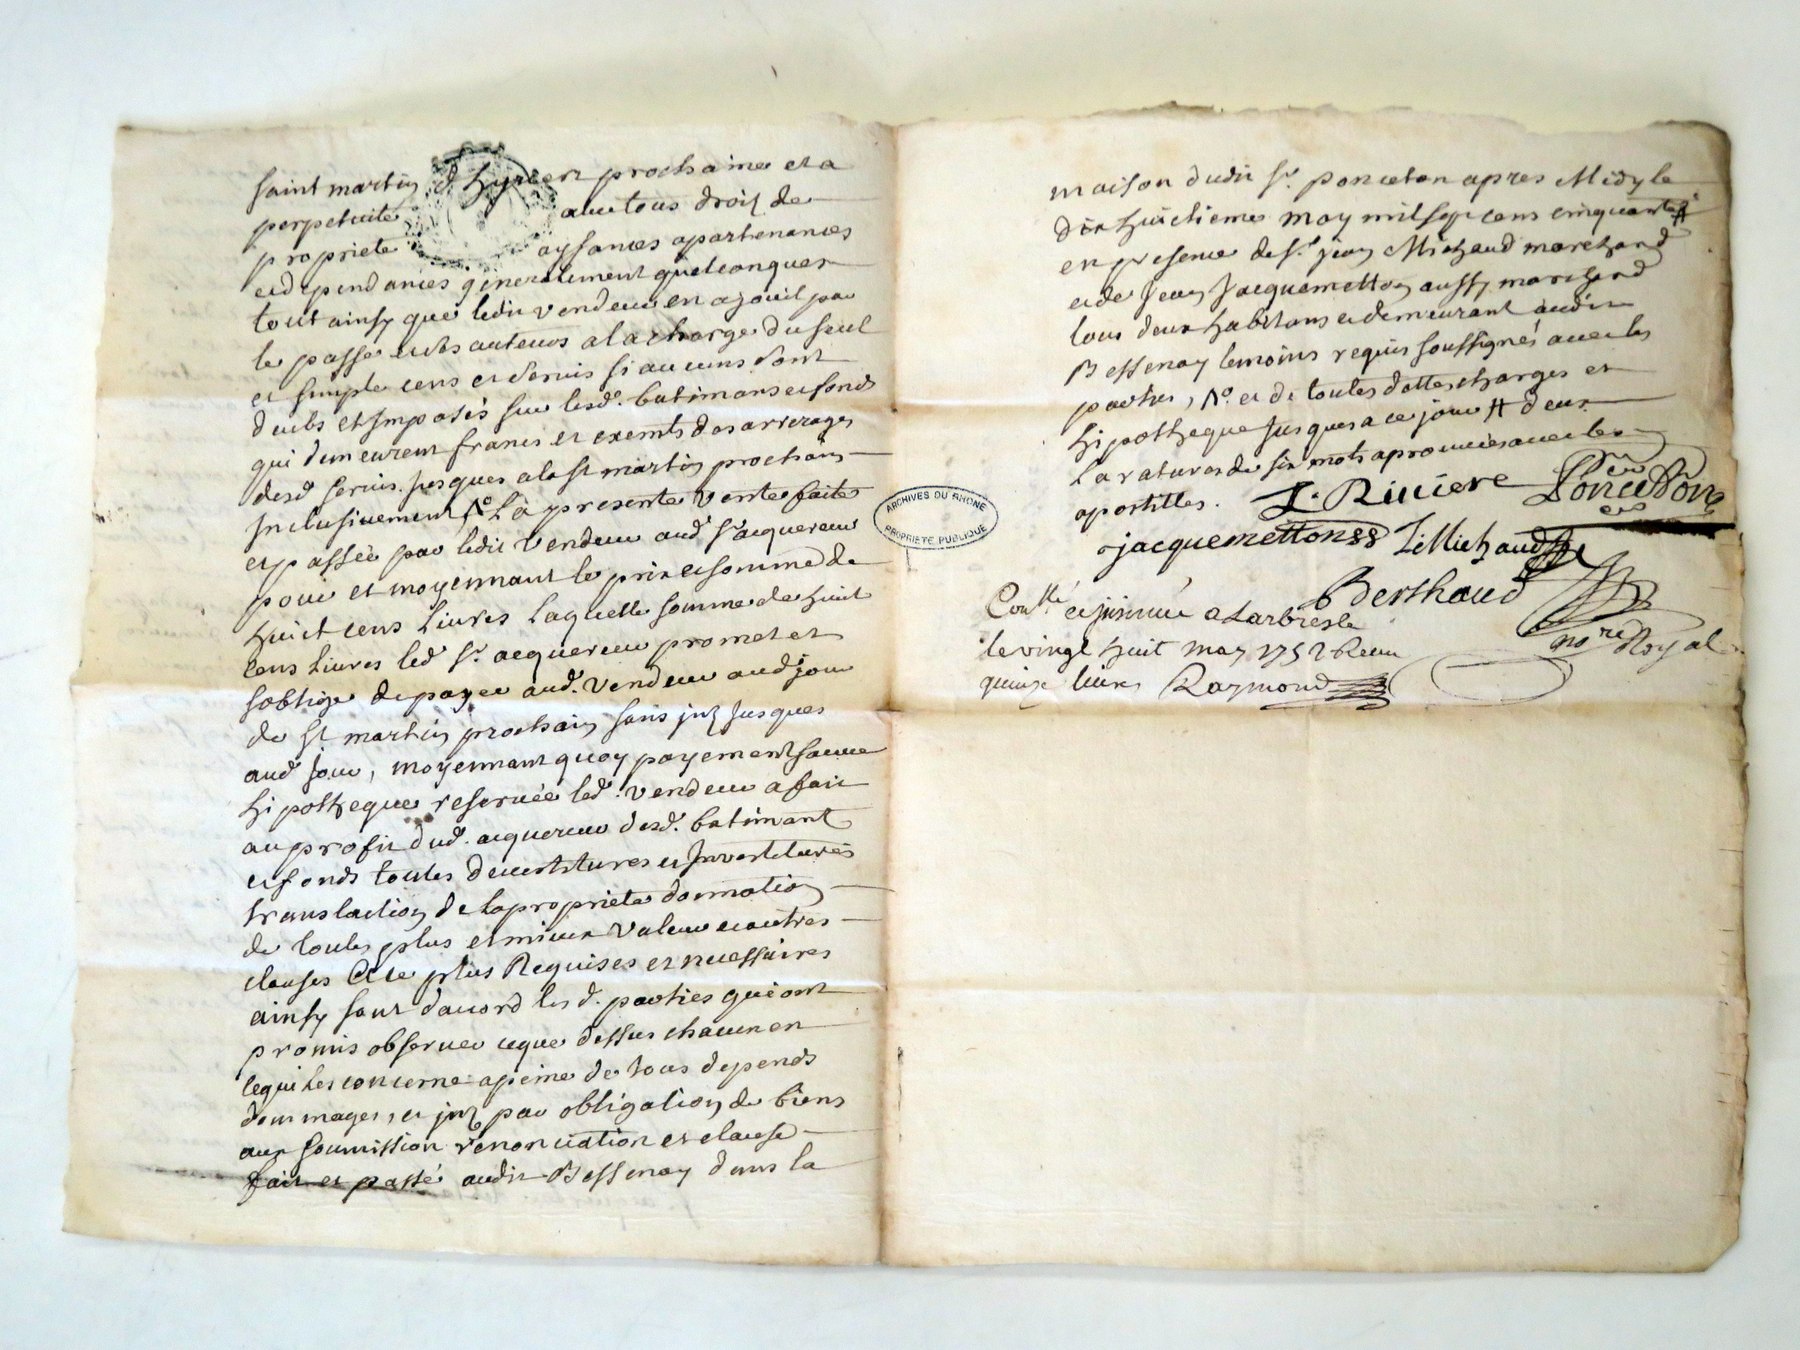 saint martin d'hyver prochaine et a
perpetuité avec tous droit de
propriete aysances apartenances
et dependances generalement quelconques
tout ainsy que ledit vendeur en a jouit par
le passe et ses auteurs a la charge du seul
et simple cens et servis si aucuns sont
deubs et imposés sur lesd. batimans et fonds
qui demeurent francs et exemts des arrerages
desd servis jusques a la st martin prochain
inclusivement, la presente vente faite
et passée par ledit vendeur aud sr acquereur
pour et moyennant le prix et somme de
huit cens livres laquelle somme de huit
cens livres led sr. acquereur promet et
soblige de payer aud. vendeur aud jour
de st martin prochain sans jnt jusques
aud jour, moyennant quoy payement sauve
hipotheque reservée led. vendeur a fait
au profit dud. acquereur desd. batimant
et fonds toutes devestitures et investitures
translation de la propriete donnation
de toutes plus et mieux value et autres
clauses a ce plus requises et necessaires
ainsy sont d'acord les d. parties qui ont
promis observer ce que dessus chacun en
ce qui les concerne a peine de tous depends
dommages, et jnt par obligation de biens
aux soumission renonciation et clause
fait et passé audit Bessenay dans la
maison dudit sr. ponceton apres midy le
dix huictieme may mil sept cens cinquante
en presence de sr. jean Michaud marchand
et de jean jacquemetton aussy marchand
tous deux habitans et demeurant audit
Bessenay temoins requis soussignés avec les
parties, et de toutes dettes charges et
hipotheque jusques a ce jour # deux
la rature de six mots aprouvées avec les
apostilles. J. Riviere Ponceton
jacquemetton J Michaud
Berthaud
nore Royal
ARCHIVES DU RHONE
PROPRIETE PUBLIQUE
Conllé et jnsinué a Larbresle
le vingt huit may 1752 Recu
quinze livres Raymond